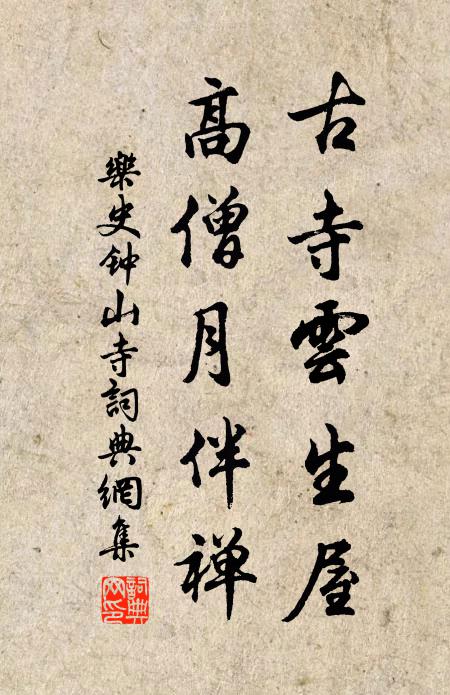 古寺雲生屋
高僧月伴禅
樂史钟山寺詞典網集
詞典网印